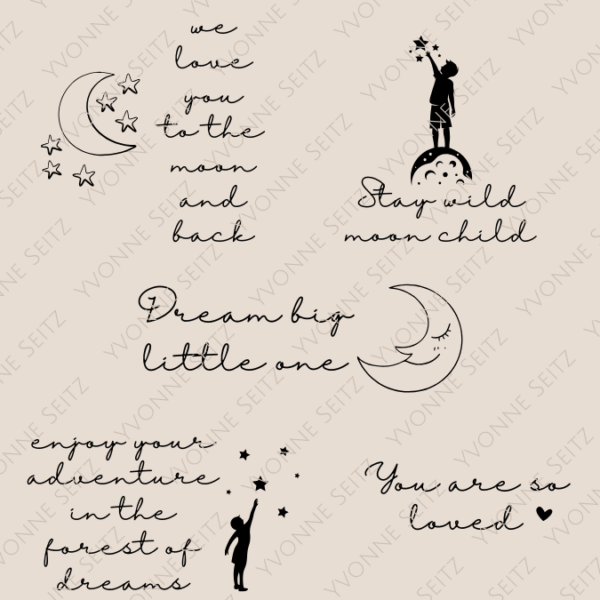 we
love
you
to the
moon
and
back
Stay wild
moon child
Dream big
little one
enjoy your
adventure
in the
forest of
dreams
You are so
loved
YVONNE SEITZ